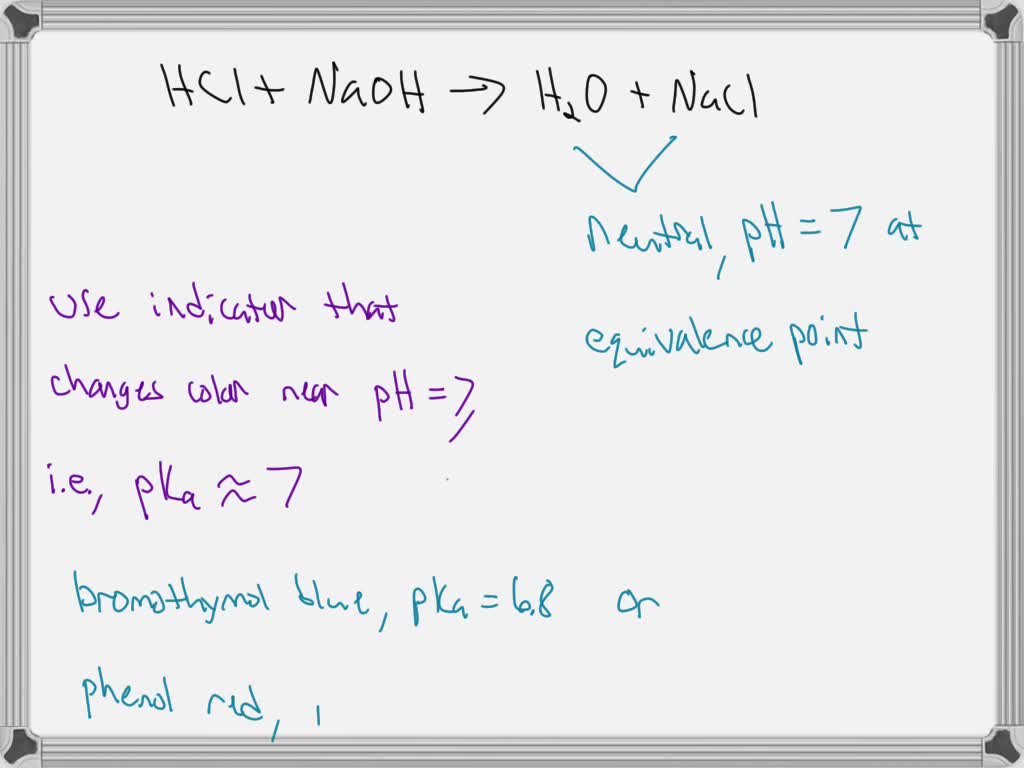 HCl + NaOH → H₂O + NaCl
neutral, pH = 7 at
equivalence point
use indicator that
changes color near pH = 7,
i.e., pKa ≈ 7
bromothymol blue, pKa = 6.8 or
phenol red,